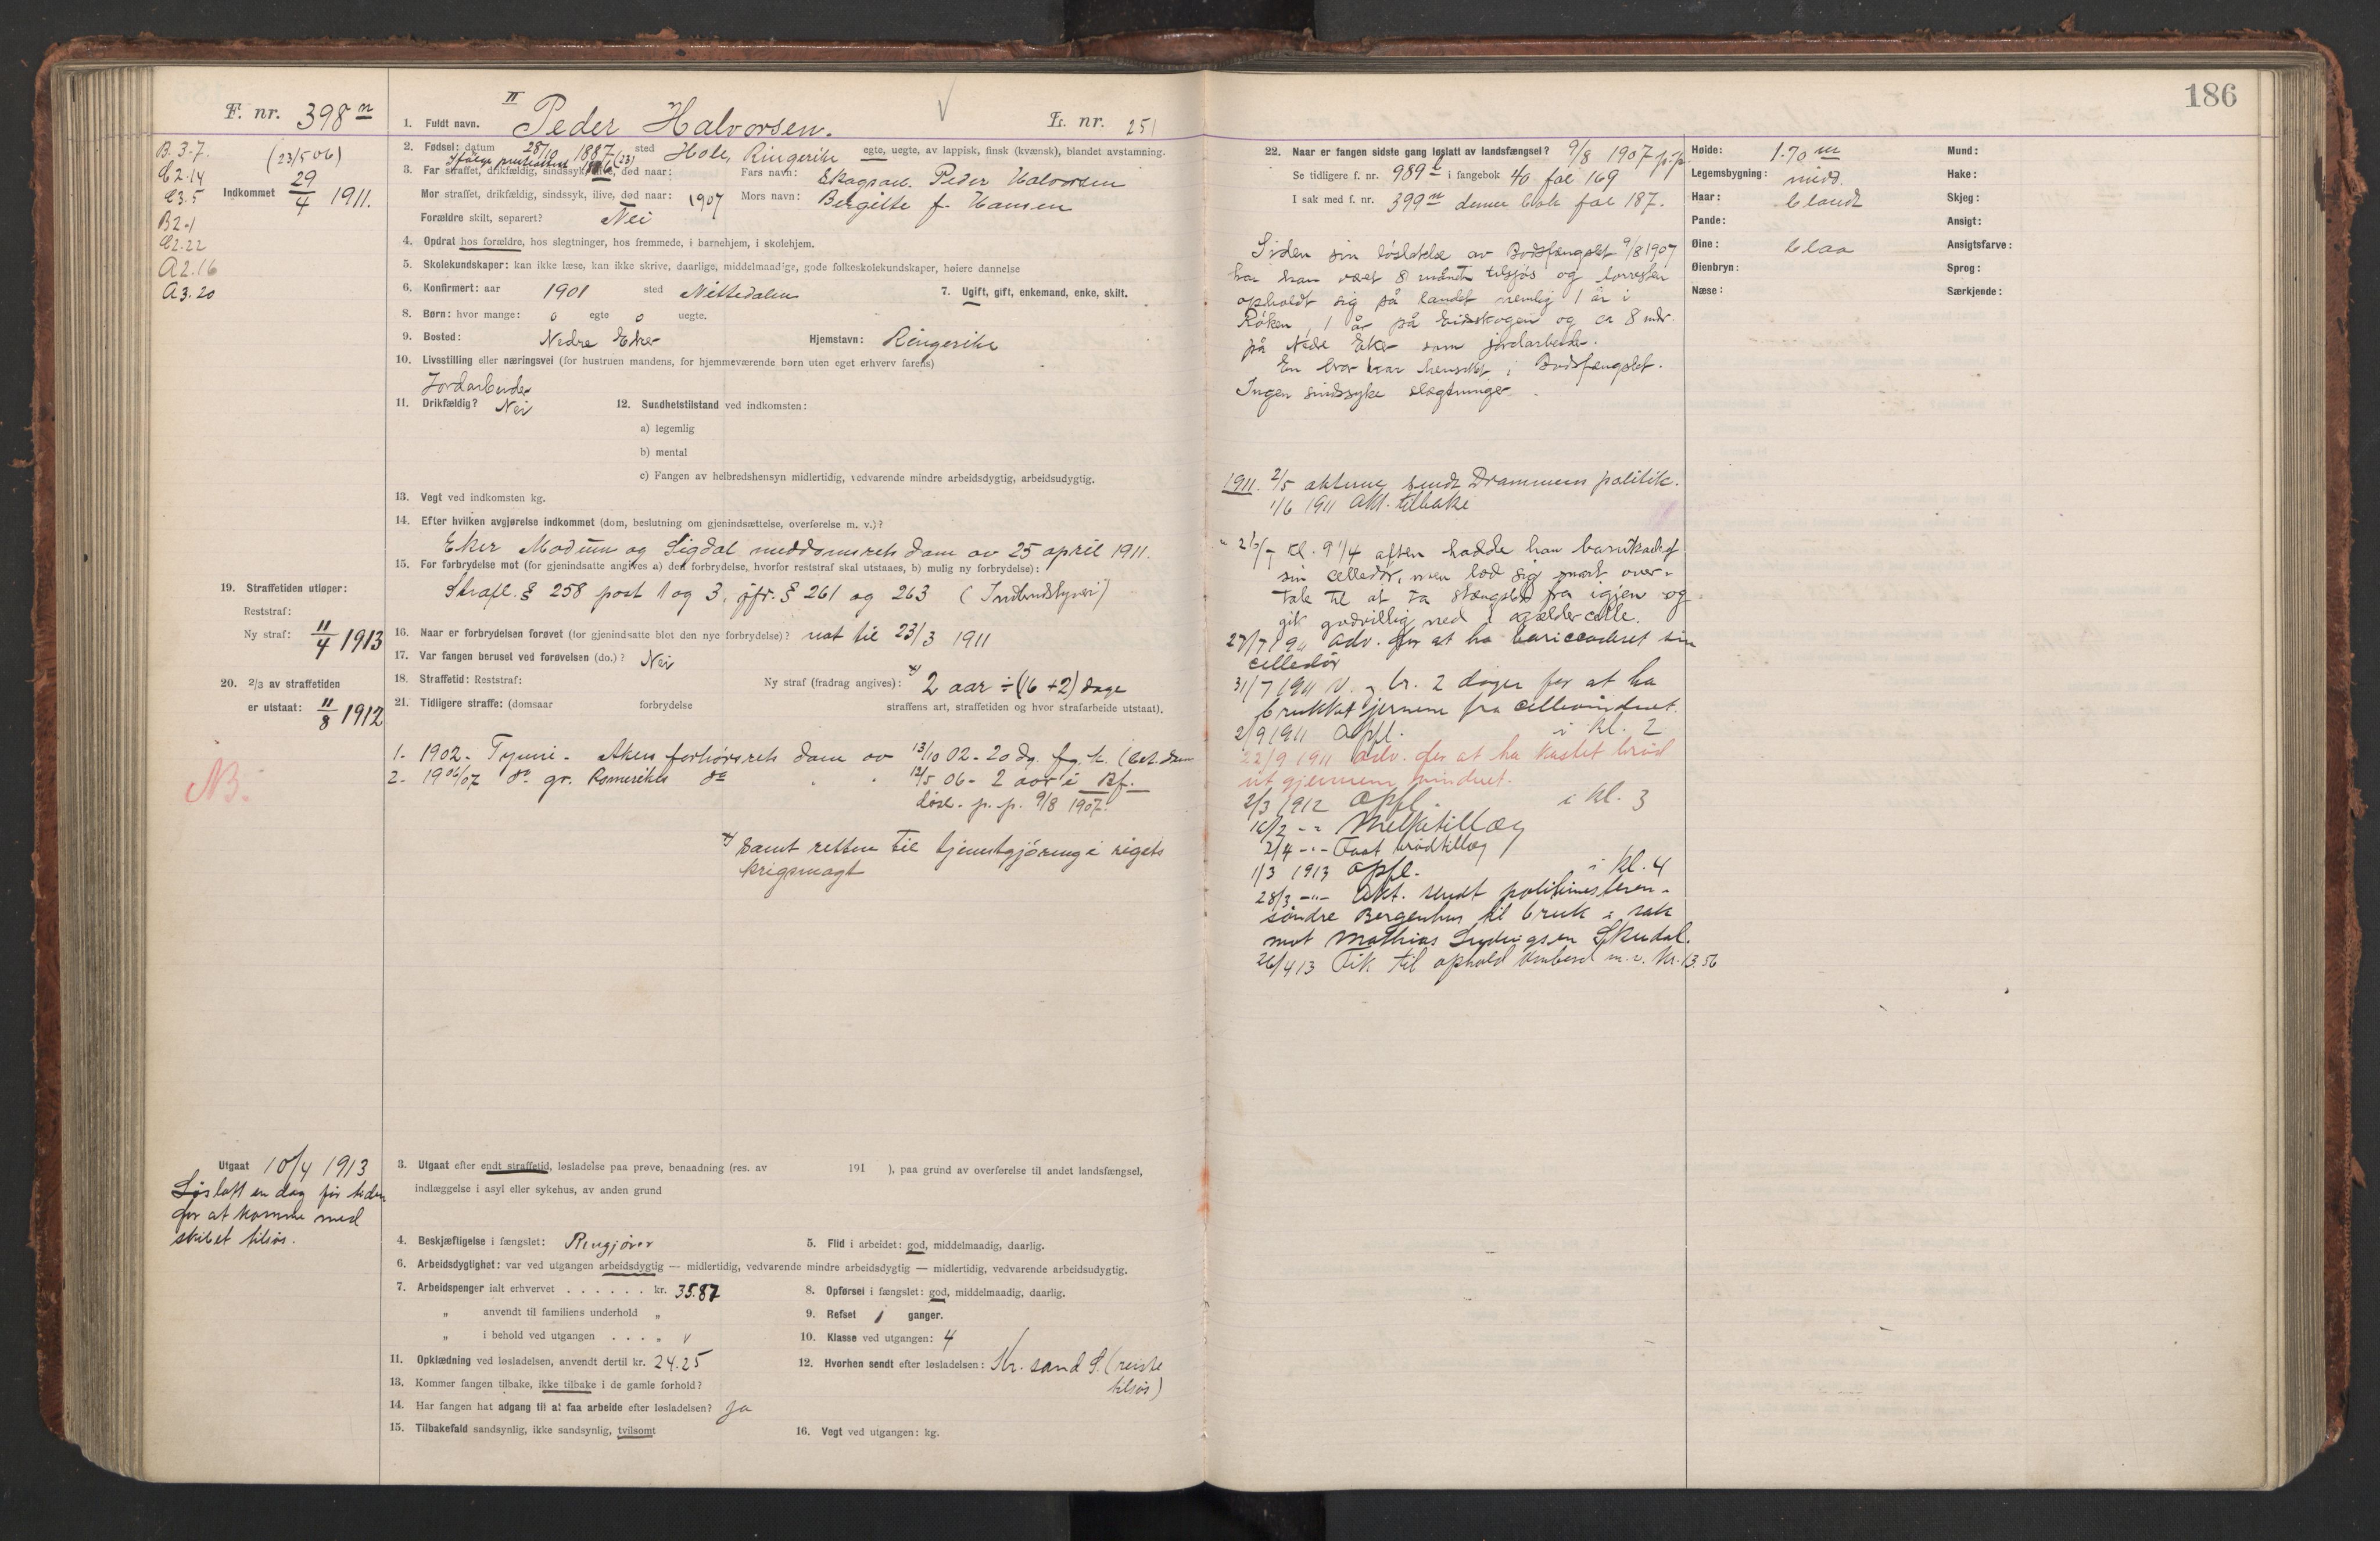 186
F. nr. 398 n
II
1. Fuldt navn. Peder Halvorsen. L. nr. 251
B. 3-7.
C 2.14
C 3.5
B 2-1
C 2.22
A 2.16
A 3.20
(23/5 06)
Indkommet 29/4 1911.
2. Fødsel: datum 28/10 1887 sted Hole, Ringerike egte, uegte, av lappisk, finsk (kvænsk), blandet avstamning.
Ifølge (23)
3. Far straffet, drikfældig, sindssyk, ilive, død naar: Fars navn: Skogsarb. Peder Halvorsen
Mor straffet, drikfældig, sindssyk, ilive, død naar: 1907 Mors navn: Bergitte f. Hansen
Forældre skilt, separert? Nei
4. Opdrat hos forældre, hos slegtninger, hos fremmede, i barnehjem, i skolehjem.
5. Skolekundskaper: kan ikke læse, kan ikke skrive, daarlige, middelmaadige, gode folkeskolekundskaper, høiere dannelse
6. Konfirmert: aar 1901 sted Nittedalen 7. Ugift, gift, enkemand, enke, skilt.
8. Børn: hvor mange: 0 egte 0 uegte.
9. Bosted: Nedre Eker Hjemstavn: Ringerike
10. Livsstilling eller næringsvei (for hustruen mandens, for hjemmeværende børn uten eget erhverv farens)
Jordarbeider
11. Drikfældig? Nei 12. Sundhetstilstand ved indkomsten:
a) legemlig
b) mental
c) Fangen av helbredshensyn midlertidig, vedvarende mindre arbeidsdygtig, arbeidsudygtig.
13. Vegt ved indkomsten kg.
14. Efter hvilken avgjørelse indkommet (dom, beslutning om gjenindsættelse, overførelse m. v.)?
Eker Modum og Sigdal meddomsrets dom av 25 april 1911.
15. For forbrydelse mot (for gjenindsatte angives a) den forbrydelse, hvorfor reststraf skal utstaaes, b) mulig ny forbrydelse):
Strafl. § 258 post 1 og 3, jfr. § 261 og 263 (Indbrudstyveri)
19. Straffetiden utløper:
Reststraf:
Ny straf: 11/4 1913
16. Naar er forbrydelsen forøvet (for gjenindsatte blot den nye forbrydelse)? nat til 23/3 1911
17. Var fangen beruset ved forøvelsen (do.)? Nei
18. Straffetid: Reststraf: Ny straf (fradrag angives): x) 2 aar ÷ (16 + 2) dage
20. 2/3 av straffetiden
er utstaat: 11/8 1912
21. Tidligere straffe: (domsaar forbrydelse straffens art, straffetiden og hvor strafarbeide utstaat).
1. 1902. Tyveri. Akers forhørsrets dom av 13/10 02 - 20 dg. fg. (bet. dom
2. 1906/07 do gr. Romerikes do 12/5 06 - 2 aar i Bf.
løsl. p. p. 9/8 1907.
NB.
x) Samt retten til tjenestgjøring i rigets
krigsmagt
Utgaat 10/4 1913
Løslatt en dag før tiden
for at komme med
skibet tilsjøs.
3. Utgaat efter endt straffetid, løsladelse paa prøve, benaadning (res. av 191 ), paa grund av overførelse til andet landsfængsel,
indlæggelse i asyl eller sykehus, av anden grund
4. Beskjæftigelse i fængslet: Rengjører 5. Flid i arbeidet: god, middelmaadig, daarlig.
6. Arbeidsdygtighet: var ved utgangen arbeidsdygtig — midlertidig, vedvarende mindre arbeidsdygtig — midlertidig, vedvarende arbeidsudygtig.
7. Arbeidspenger ialt erhvervet . . . . . . kr. 35.87 8. Opførsel i fængslet: god, middelmaadig, daarlig.
„ anvendt til familiens underhold „ 9. Refset 1 ganger.
„ i behold ved utgangen . . . „ 10. Klasse ved utgangen: 4
11. Opklædning ved løsladelsen, anvendt dertil kr. 24.25 12. Hvorhen sendt efter løsladelsen: Kr. sand S. (reiste
tilsjøs)
13. Kommer fangen tilbake, ikke tilbake i de gamle forhold?
14. Har fangen hat adgang til at faa arbeide efter løsladelsen? Ja
15. Tilbakefald sandsynlig, ikke sandsynlig, tvilsomt 16. Vegt ved utgangen: kg.
22. Naar er fangen sidste gang løslatt av landsfængsel? 9/8 1907 p.p.
Se tidligere f. nr. 989 l i fangebok 40 fol 169
I sak med f. nr. 399 n denne bok fol 187.
Siden sin løslatelse av Bodsfængslet 9/8 1907
har han været 8 måneder tilsjøs og forresten
opholdt sig på landet nemlig 1 år i
Røken, 1 år på Eidskogen og ca 8 mdr.
på Nedre Eker som jordarbeider.
En bror har hensittet i Bodsfængslet.
Ingen sindssyke slægtninger.
1911. 2/5 akterne sendt Drammens politik.
1/6 1911 Akt. tilbake
kl. 9 1/4 aften hadde han barrikadert
sin celledør, men lod sig snart over-
tale til at ta stængslet fra igjen og
gik godvillig ned i kjældercelle.
27/7 adv. for at ha bariccaderet sin
celledør
31/7 1911 V. og br. 2 dager for at ha
brukket jernene fra cellevinduet.
2/9 1911 Opfl. i kl. 2
22/9 1911 adv. for at ha kastet brød
ut gjennem vinduet.
2/3 1912 Opfl. i kl. 3
16/2 -"- Melketillæg
2/4 -"- Faat brødtillæg
1/3 1913 opfl. i kl. 4
28/3 -"- Akt. sendt politimesteren
søndre Bergenhus til bruk i sak
mot Mathias Ludvigsen Skudal.
26/4 13 Fik til ophold ombord m. v. kr. 13.56
Høide: 1.70 m
Legemsbygning: midd.
Haar: blondt
Pande:
Øine: blaa
Øienbryn:
Næse:
Mund:
Hake:
Skjeg:
Ansigt:
Ansigtsfarve:
Sprog:
Særkjende: